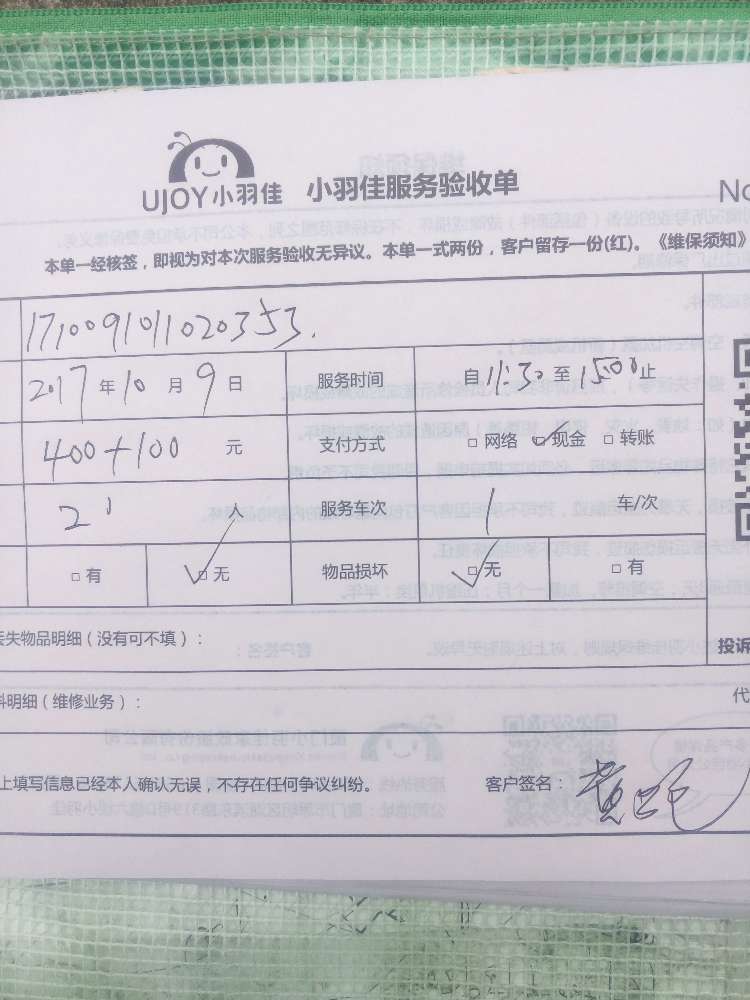 UJOY小羽佳 小羽佳服务验收单 No
本单一经核签，即视为对本次服务验收无异议。本单一式两份，客户留存一份(红)。《维保须知》
1710091011020353.
2017年10月9日 服务时间 自11:30至15:00止
400+100 元 支付方式 □网络 □现金 □转账
2 人 服务车次 1 车/次
□有 □无 物品损坏 □无 □有
丢失物品明细（没有可不填）： 投诉
料明细（维修业务）： 代
上填写信息已经本人确认无误，不存在任何争议纠纷。 客户签名：